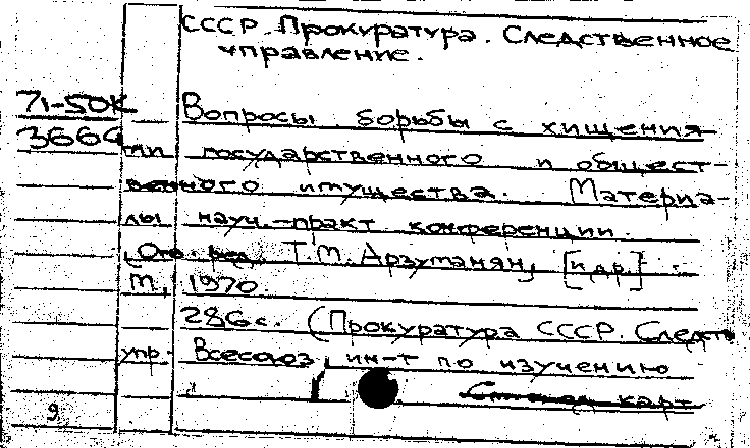 СССР. Прокуратура. Следственное
управление.
71-50К
3664
Вопросы борьбы с хищения-
ми государственного и общест-
венного имущества. Материа-
лы науч.-практ конференции.
(Отв. ред. Т.М. Арзуманян, [и др.]
М., 1970.
286 с. (Прокуратура СССР. Следств
упр. Всесоюз. ин-т по изучению
карт
9